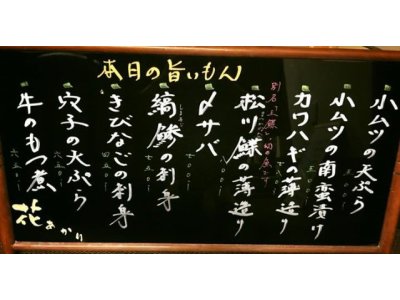 本日の旨いもん
小ムツの天ぷら
小ムツの南蛮漬け
カワハギの薄造り
松川鰈の薄造り
〆サバ
縞鯵の刺身
きびなごの刺身
穴子の天ぷら
牛のもつ煮
花あかり